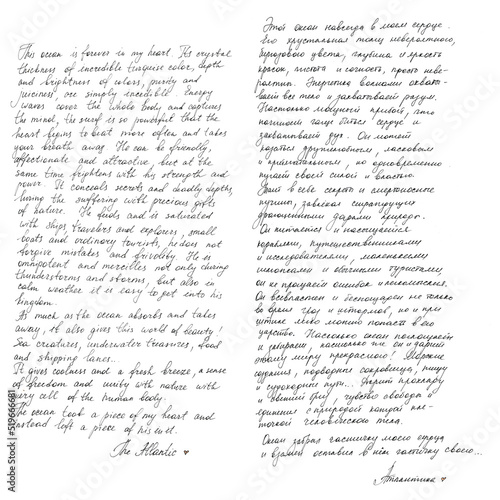 This ocean is forever in my heart. Its crystal
thickness of incredible turquoise color, depth
and brightness of colors, purity and
juiciness, are simply incredible. Energy
waves cover the whole body and captures
the mind, the surf is so powerful that the
heart begins to beat more often and takes
your breath away. He can be friendly,
affectionate and attractive, but at the
same time frightens with his strength and
power. It conceals secrets and deadly depths,
luring the suffering with precious gifts
of nature. He feeds and is saturated
with ships, travelers and explorers, small
boats and ordinary tourists, he does not
forgive mistakes and frivolity. He is
omnipotent and merciless not only during
thunderstorms and storms, but also in
calm weather it is easy to get into his
kingdom.
As much as the ocean absorbs and takes
away, it also gives this world of beauty!
Sea creatures, underwater treasures, food
and shipping lanes...
It gives coolness and a fresh breeze, a sense
of freedom and unity with nature with
every cell of the human body.
The ocean took a piece of my heart and
instead left a piece of his own.
The Atlantic ♥
Этот океан навсегда в моем сердце.
Его хрустальная толща невероятного,
бирюзового цвета, глубина и яркость
красок, чистота и сочность, просто неве-
роятны. Энергетик волнами охваты-
вает все тело и захватывает разум.
Настолько мощный прибой, что
начинает чаще биться сердце и
захватывает дух. Он может
казаться дружелюбным, ласковым
и притягательным, но одновременно
пугает своей силой и властью.
Таит в себе секреты и смертоносные
пучины, завлекая страждущих
драгоценными дарами природы.
Он питается и насыщается
кораблями, путешественниками
и исследователями, маленькими
лодками и обычными туристами,
он не прощает ошибок и легкомыслия.
Он всевластен и беспощаден не только
во время гроз и штормов, но и при
штиле легко можно попасть в его
царство. Насколько океан поглощает
и забирает, настолько же он и дарит
этому миру прекрасного! Морские
создания, подводные сокровища, пищу
и судоходные пути... Дарит прохладу
и свежий бриз, чувство свободы и
единения с природой каждой кле-
точкой человеческого тела.
Океан забрал частичку моего сердца
и взамен оставил в нём частичку своего...
Атлантика ♥
519666681
Adobe Stock